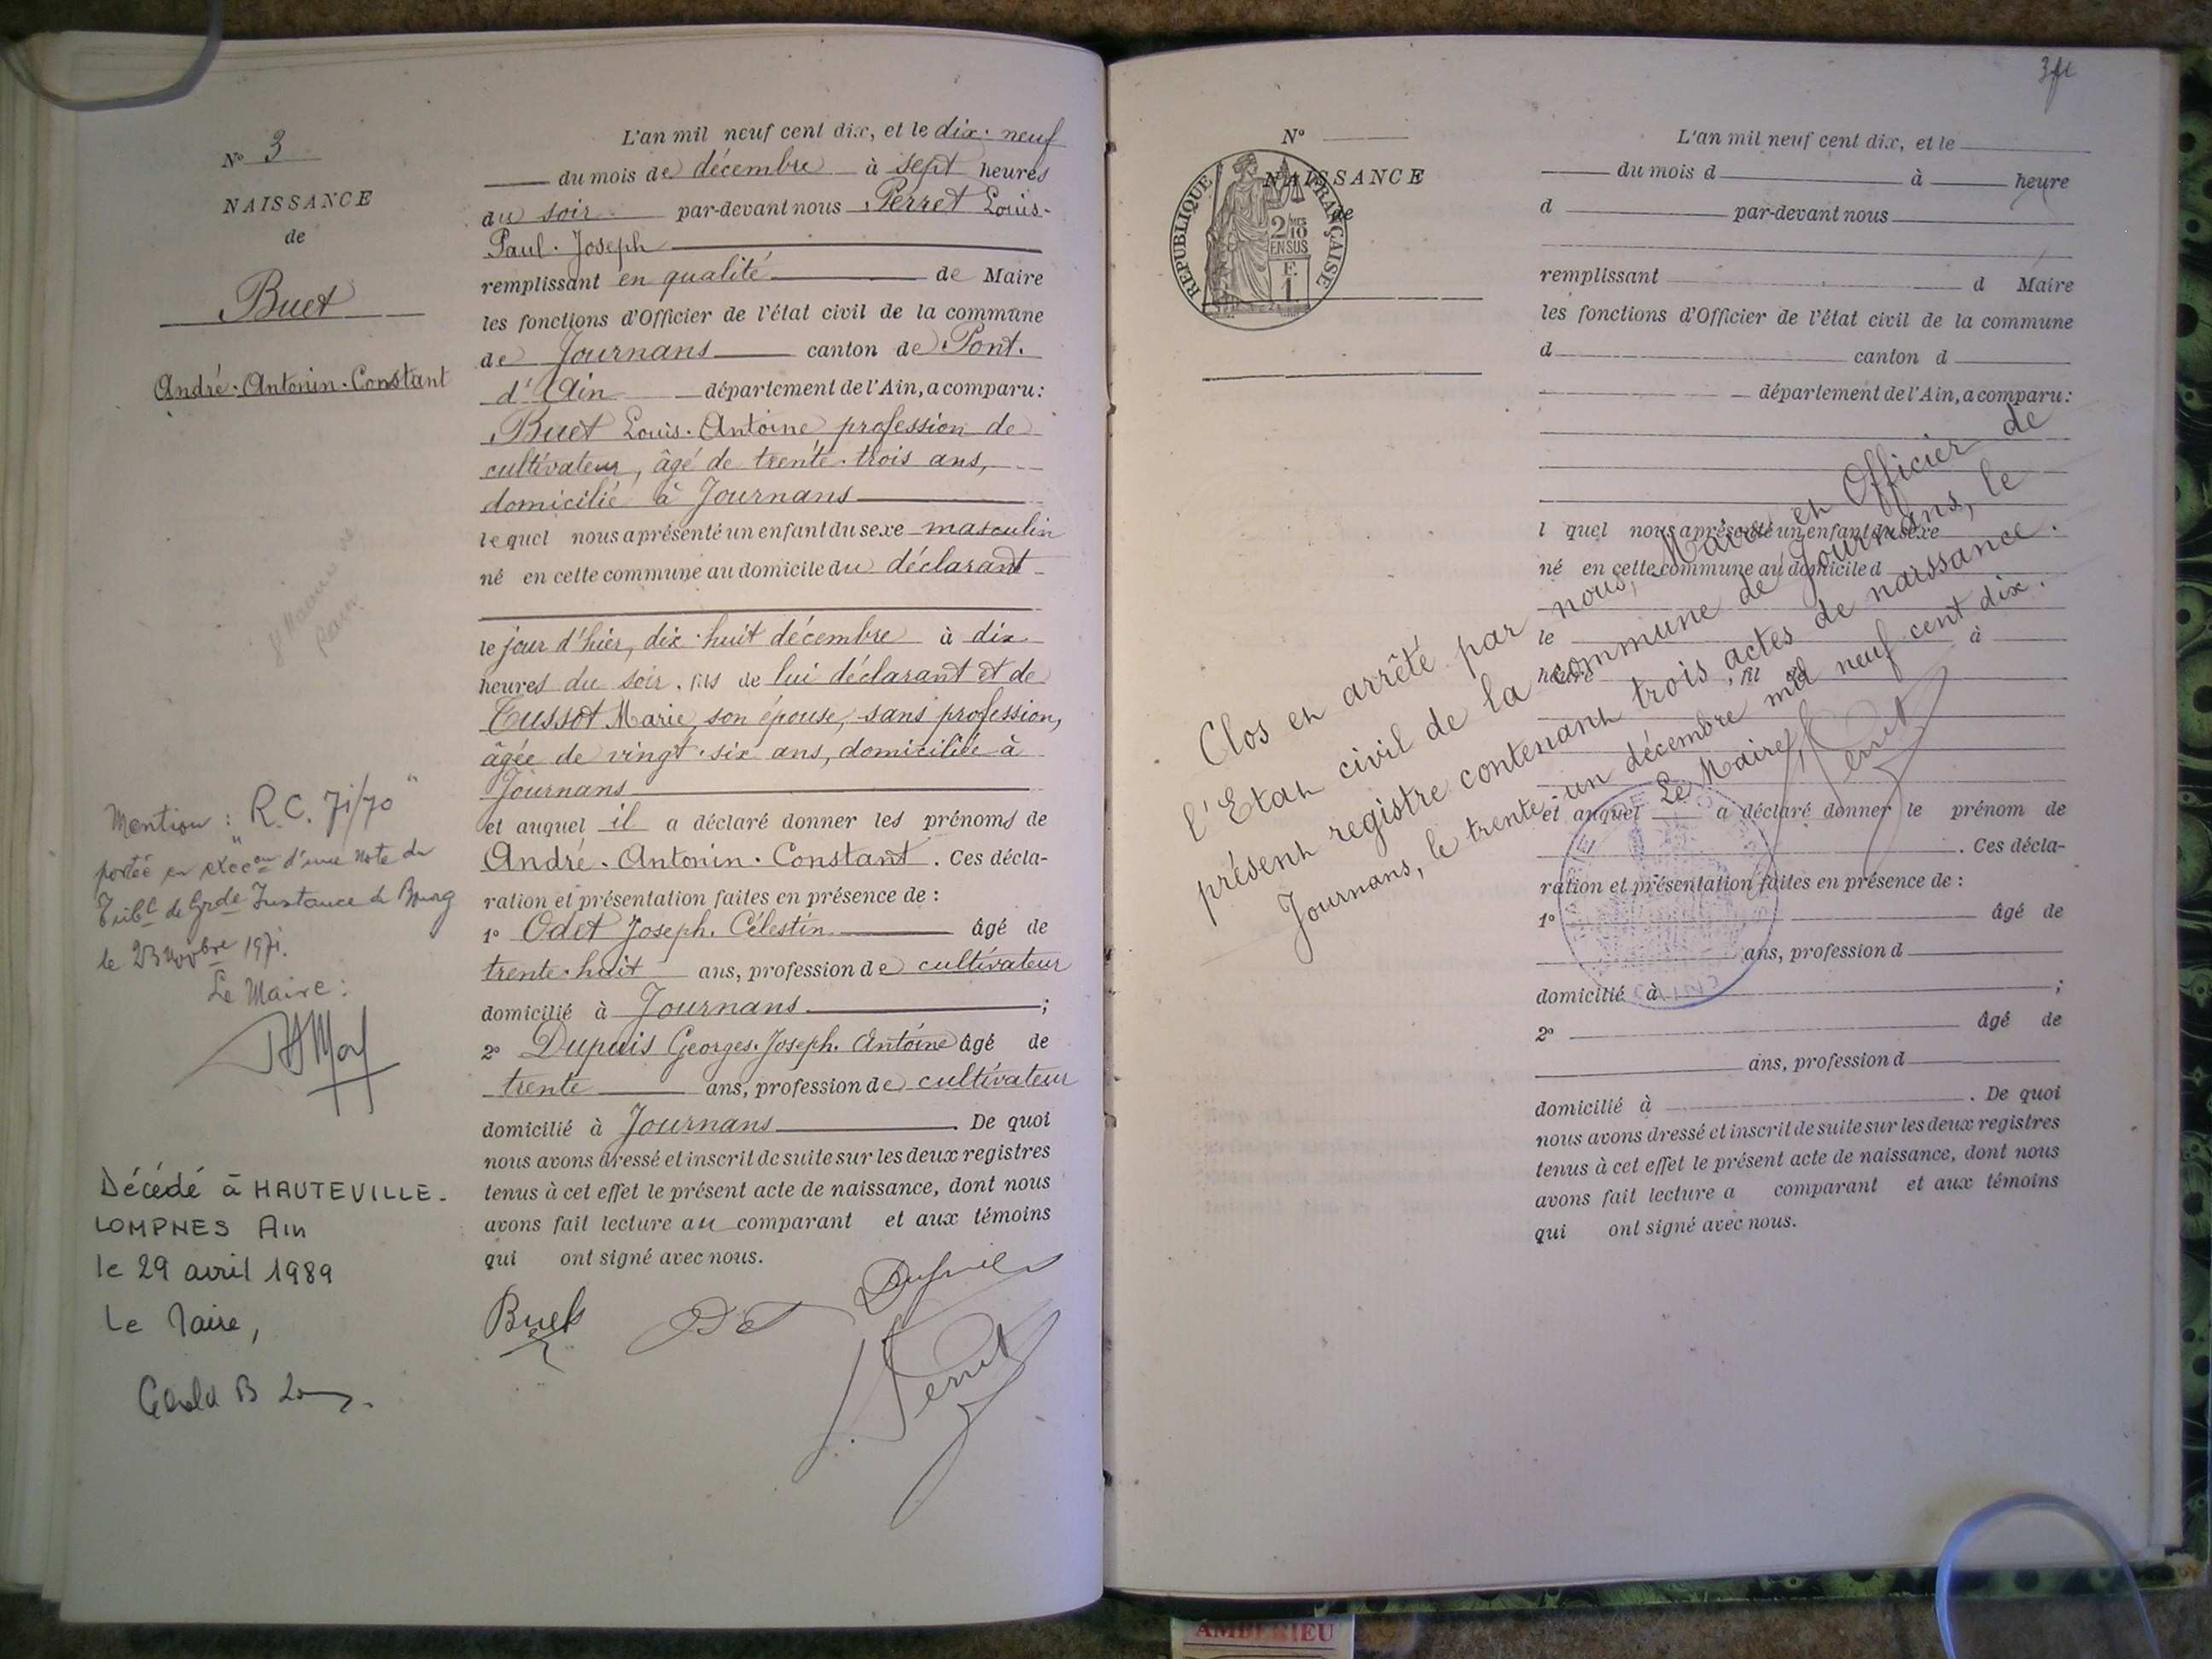 N° 3
NAISSANCE
de
Buet
André-Antonin-Constant
Mention : "R.C. 71/70"
portée en exécon d'une note du
Tribl de Grde Instance de Bourg
le 23 novbre 1971.
Le Maire :
Décédé à HAUTEVILLE-
LOMPNES Ain
le 29 avril 1989
Le Maire,
L'an mil neuf cent dix, et le dix-neuf
du mois de décembre à sept heures
du soir par-devant nous Perret Louis-
Paul-Joseph
remplissant en qualité de Maire
les fonctions d'Officier de l'état civil de la commune
de Journans canton de Pont-
d'Ain département de l'Ain, a comparu :
Buet Louis-Antoine profession de
cultivateur, âgé de trente-trois ans,
domicilié à Journans
lequel nous a présenté un enfant du sexe masculin
né en cette commune au domicile du déclarant
le jour d'hier, dix-huit décembre à dix
heures du soir, fils de lui déclarant et de
Tussot Marie, son épouse, sans profession,
âgée de vingt-six ans, domiciliée à
Journans
et auquel il a déclaré donner les prénoms de
André-Antonin-Constant. Ces décla-
ration et présentation faites en présence de :
1° Odet Joseph-Célestin âgé de
trente-huit ans, profession de cultivateur
domicilié à Journans ;
2° Dupuis Georges-Joseph-Antoine âgé de
trente ans, profession de cultivateur
domicilié à Journans. De quoi
nous avons dressé et inscrit de suite sur les deux registres
tenus à cet effet le présent acte de naissance, dont nous
avons fait lecture au comparant et aux témoins
qui ont signé avec nous.
Buet
Odet
Dupuis
J. Perret
N°
NAISSANCE
de
RÉPUBLIQUE FRANÇAISE
2/10
EN SUS
F.
1
L'an mil neuf cent dix, et le
du mois d à heure
d par-devant nous
remplissant d Maire
les fonctions d'Officier de l'état civil de la commune
d canton d
département de l'Ain, a comparu :
l quel nous a présenté un enfant du sexe
né en cette commune au domicile d
le à
heure , fil de
et auquel a déclaré donner le prénom de
. Ces décla-
ration et présentation faites en présence de :
1° âgé de
ans, profession d
domicilié à ;
2° âgé de
ans, profession d
domicilié à . De quoi
nous avons dressé et inscrit de suite sur les deux registres
tenus à cet effet le présent acte de naissance, dont nous
avons fait lecture a comparant et aux témoins
qui ont signé avec nous.
Clos et arrêté par nous, Maire et Officier de
l'Etat civil de la commune de Journans, le
présent registre contenant trois actes de naissance.
Journans, le trente-un décembre mil neuf cent dix.
Le Maire,
Perret
AMBERIEU